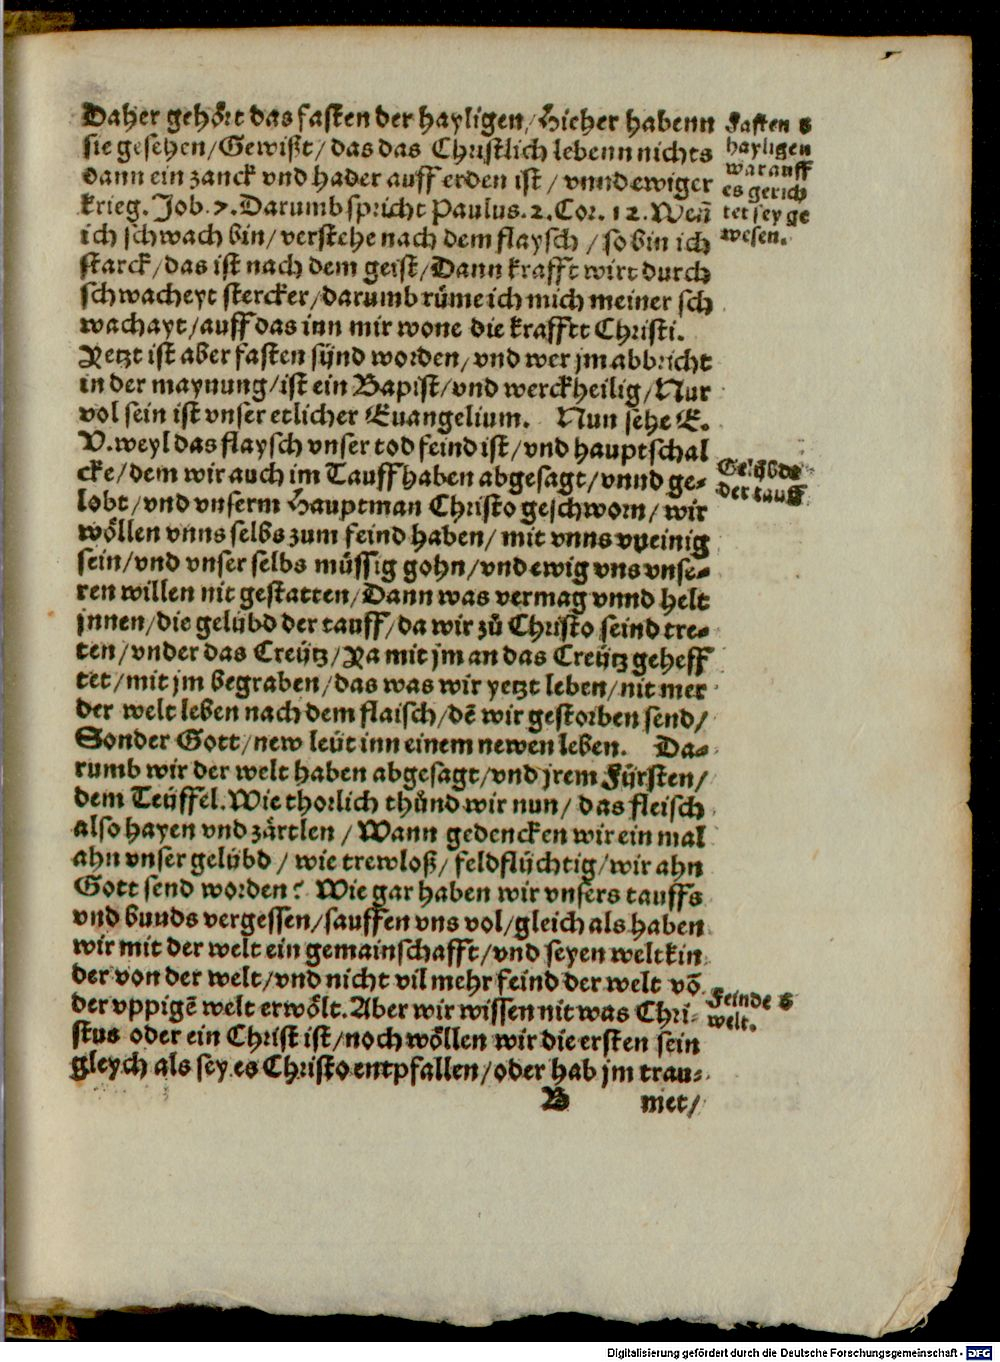 Daher gehört das fasten der hayligen/Hieher habenn
sie gesehen/Gewißt/das das Christlich lebenn nichts
dann ein zanck vnd hader auff erden ist/vnnd ewiger
krieg. Job.7.Darumb spricht Paulus.2.Cor.12.Weñ
ich schwach bin/verstehe nach dem flaysch/so bin ich
starck/das ist nach dem geist/Dann krafft wirt durch
schwacheyt stercker/darumb rüme ich mich meiner sch
wachayt/auff das inn mir wone die krafftt Christi.
Yetzt ist aber fasten sünd worden/vnd wer jm abbricht
in der maynung/ist ein Bapist/vnd werckheilig/Nur
vol sein ist vnser etlicher Euangelium. Nun sehe E.
V.weyl das flaysch vnser tod feind ist/vnd hauptschal
cke/dem wir auch im Tauff haben abgesagt/vnnd ge-
lobt/vnd vnserm Hauptman Christo geschworn/wir
wöllen vnns selbs zum feind haben/mit vnns vneinig
sein/vnd vnser selbs müssig gohn/vnd ewig vns vnse-
ren willen nit gestatten/Dann was vermag vnnd helt
jnnen/die gelübd der tauff/da wir zů Christo seind tre-
ten/vnder das Creütz/Ya mit jm an das Creütz geheff
tet/mit jm begraben/das was wir yetzt leben/nit mer
der welt leben nach dem flaisch/dẽ wir gestorben send/
Sonder Gott/new leüt inn einem newen leben. Da-
rumb wir der welt haben abgesagt/vnd jrem Fürsten/
dem Teüffel.Wie thorlich thůnd wir nun/das fleisch
also hayen vnd zärtlen/Wann gedencken wir ein mal
ahn vnser gelübd/wie trewloß/feldflüchtig/wir ahn
Gott send worden? Wie gar haben wir vnsers tauffs
vnd bunds vergessen/sauffen vns vol/gleich als haben
wir mit der welt ein gemainschafft/vnd seyen weltkin
der von der welt/vnd nicht vil mehr feind der welt võ
der vppigẽ welt erwölt.Aber wir wissen nit was Chri-
stus oder ein Christ ist/noch wöllen wir die ersten sein
gleych als sey es Christo entpfallen/oder hab jm trau-
B met/
Fasten d
hayligen
warauff
es gerich
tet sey ge
wesen.
Gelübde
der tauff
Feinde d
welt.
Digitalisierung gefördert durch die Deutsche Forschungsgemeinschaft - DFG